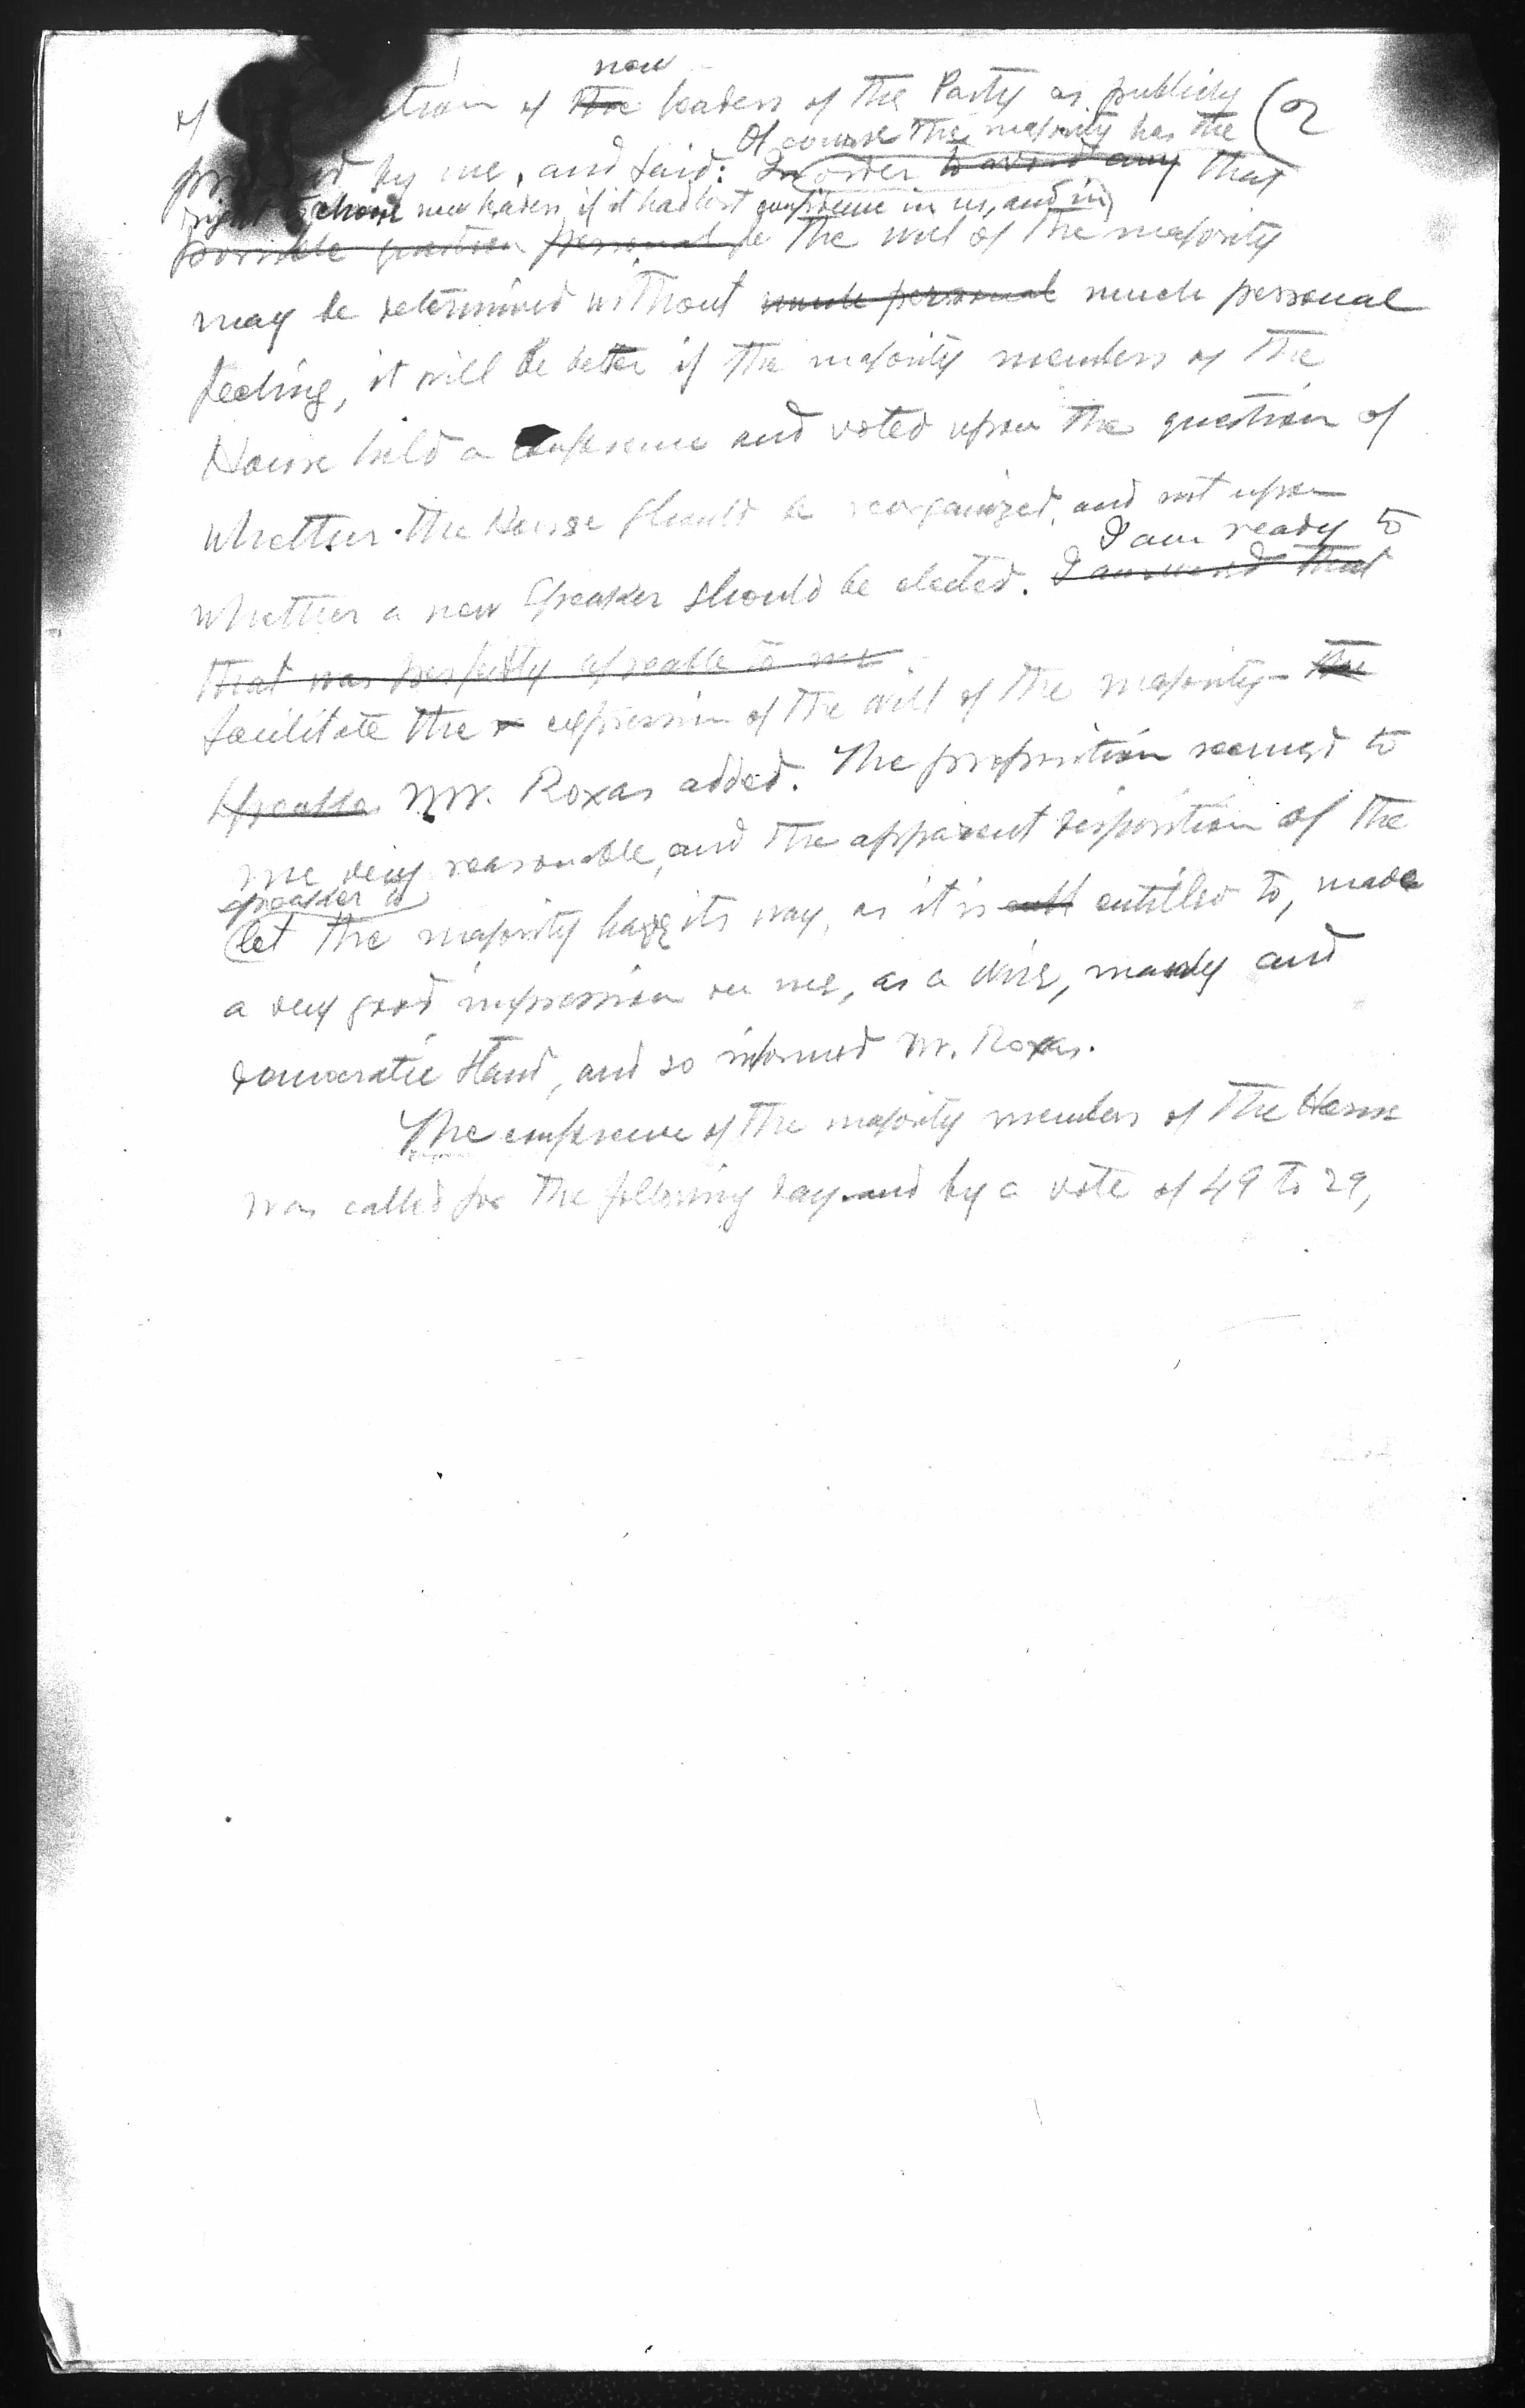 now
of the leaders of the Party as publicly (2
Of course the majority has the
by me, and said: In order to avoid any that
right to choose new leaders, if it had lost confidence in us, and in
possible personal the will of the majority
may be determined without much personal much personal
feeling, it will be better if the majority members of the
House held a conference and voted upon the question of
whether the House should be reorganized, and not upon
I am ready to
whether a new Speaker should be elected. I answered that
that was perfectly agreeable to me.
facilitate the expression of the will of the majority - the
Speaker Mr. Roxas added. The proposition seemed to
me very reasonable, and the apparent disposition of the
Speaker to
let the majority have its way, as it is entitled to, made
a very good impression on me, as a wise, manly and
democratic stand, and so informed Mr. Roxas.
The conference of the majority members of the House
was called for the following day and by a vote of 49 to 29,